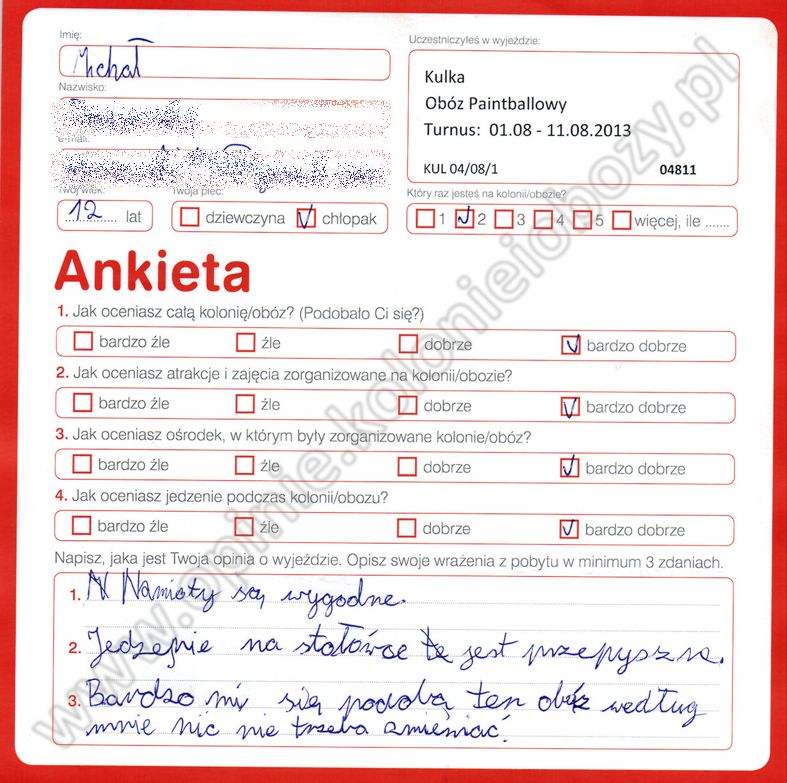 Imię:
Michał
Nazwisko:
e-mail:
Twój wiek:
12 lat
Twoja płeć:
dziewczyna chłopak
Uczestniczyłeś w wyjeździe:
Kulka
Obóz Paintballowy
Turnus: 01.08 - 11.08.2013
KUL 04/08/1 04811
Który raz jesteś na kolonii/obozie?
1 2 3 4 5 więcej, ile .......
Ankieta
1. Jak oceniasz całą kolonię/obóz? (Podobało Ci się?)
bardzo źle źle dobrze bardzo dobrze
2. Jak oceniasz atrakcje i zajęcia zorganizowane na kolonii/obozie?
bardzo źle źle dobrze bardzo dobrze
3. Jak oceniasz ośrodek, w którym były zorganizowane kolonie/obóz?
bardzo źle źle dobrze bardzo dobrze
4. Jak oceniasz jedzenie podczas kolonii/obozu?
bardzo źle źle dobrze bardzo dobrze
Napisz, jaka jest Twoja opinia o wyjeździe. Opisz swoje wrażenia z pobytu w minimum 3 zdaniach.
1. Namioty są wygodne.
2. Jedzenie na stołówce jest przepyszne.
3. Bardzo mi się podoba ten obóz według
mnie nic nie trzeba zmieniać!
www.opinie.kolonieiobozy.pl